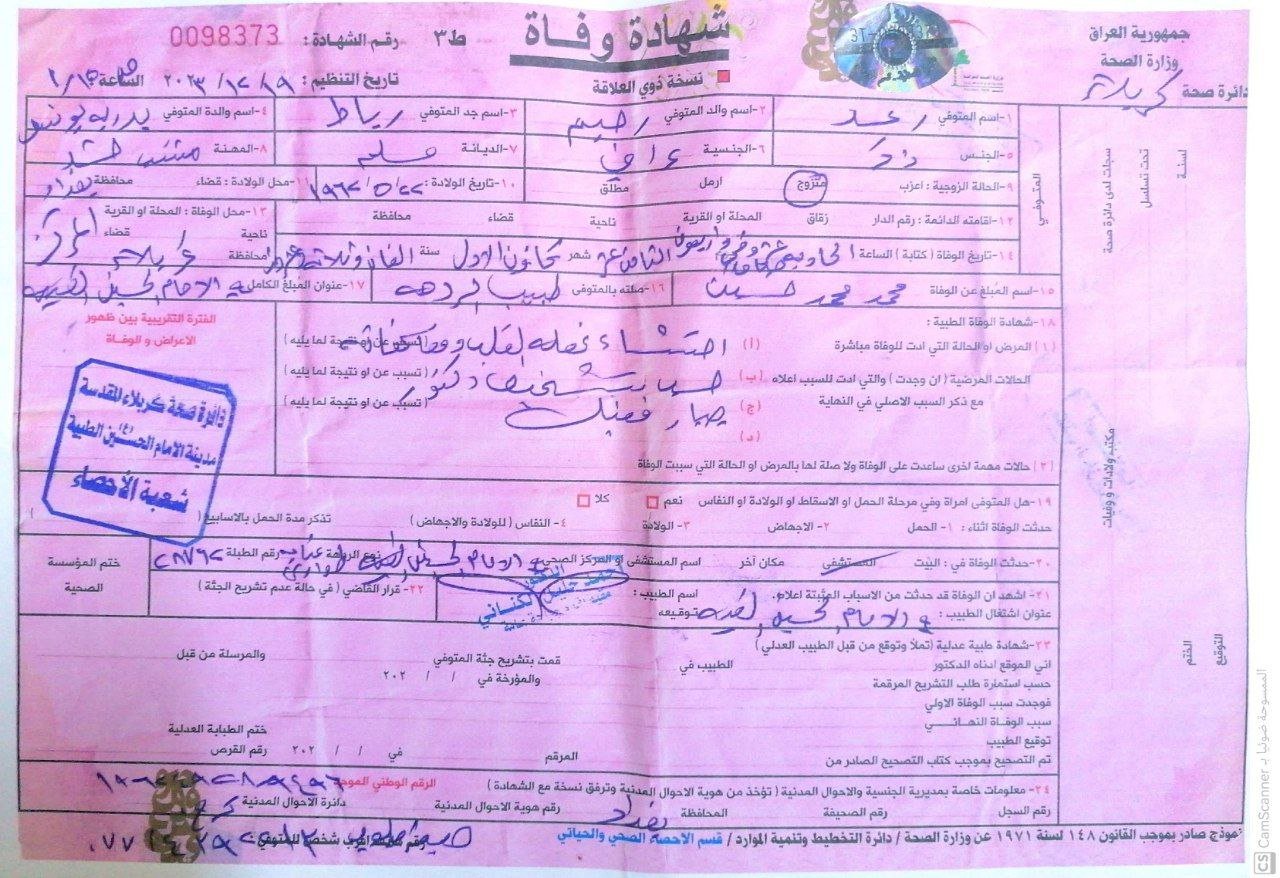 جمهورية العراق
وزارة الصحة
دائرة صحة كربلاء
شهادة وفاة
ط٣
رقم الشهادة: 0098373
نسخة ذوي العلاقة
تاريخ التنظيم: ١٩ / ١٢ / ٢٠٢٣ الساعة
١-اسم المتوفي رعد ٢-اسم والد المتوفي رحيم ٣-اسم جد المتوفي رباط ٤-اسم والدة المتوفي بدريه يونس
٥-الجنس ذكر ٦-الجنسية عراقي ٧-الديانة مسلم ٨-المهنة
٩-الحالة الزوجية: اعزب متزوج ارمل مطلق ١٠-تاريخ الولادة: ٢٢/٥/١٩٦٢ ١١-محل الولادة: قضاء محافظة بغداد
١٢-اقامته الدائمة: رقم الدار زقاق المحلة او القرية ناحية قضاء محافظة
١٣-محل الوفاة: المحلة او القرية ناحية قضاء المركز محافظة كربلاء
١٤-تاريخ الوفاة (كتابة) الساعة الثامن عشر شهر كانون الاول سنة الفان وثلاثة وعشرون
١٥-اسم المُبلغ عن الوفاة محمد محمد حسين ١٦-صلته بالمتوفي طبيب الردهه ١٧-عنوان المبلغ الكامل م الامام الحسين الطبية
١٨-شهادة الوفاة الطبية:
الفترة التقريبية بين ظهور الاعراض و الوفاة
(١) المرض او الحالة التي ادت للوفاة مباشرة (أ) احتشاء عضلة القلب (تسبب عن او نتيجة لما يليه)
الحالات المرضية (ان وجدت) والتي ادت للسبب اعلاه (ب) دكتور (تسبب عن او نتيجة لما يليه)
مع ذكر السبب الاصلي في النهاية (ج) (تسبب عن او نتيجة لما يليه)
(د)
(٢) حالات مهمة اخرى ساعدت على الوفاة ولا صلة لها بالمرض او الحالة التي سببت الوفاة
دائرة صحة كربلاء المقدسة
مدينة الامام الحسين (ع) الطبية
شعبة الأحصاء
١٩-هل المتوفى امراة وفي مرحلة الحمل او الاسقاط او الولادة او النفاس نعم كلا
حدثت الوفاة اثناء: ١- الحمل ٢- الاجهاض ٣- الولادة ٤- النفاس (للولادة والاجهاض) تذكر مدة الحمل بالاسابيع ( )
٢٠-حدثت الوفاة في: البيت المستشفى مكان آخر اسم المستشفى او المركز الصحي م الامام الحسين نوع الردهة رقم الطبلة
ختم المؤسسة الصحية
٢١- اشهد ان الوفاة قد حدثت من الاسباب المثبتة اعلاه. اسم الطبيب:
عنوان اشتغال الطبيب: م الامام الحسين توقيعه
٢٢-قرار القاضي (في حالة عدم تشريح الجثة)
٢٣-شهادة طبية عدلية (تملأ وتوقع من قبل الطبيب العدلي)
اني الموقع ادناه الدكتور الطبيب في قمت بتشريح جثة المتوفي والمرسلة من قبل
حسب استمارة طلب التشريح المرقمة والمؤرخة في / / ٢٠٢
فوجدت سبب الوفاة الاولي
سبب الوفاة النهائي
توقيع الطبيب ختم الطبابة العدلية
تم التصحيح بموجب كتاب التصحيح الصادر من المرقم في / / ٢٠٢ رقم القرص
٢٤- معلومات خاصة بمديرية الجنسية والاحوال المدنية (تؤخذ من هوية الاحوال المدنية وترفق نسخة مع الشهادة) الرقم الوطني الموحد
رقم السجل رقم الصحيفة المحافظة بغداد رقم هوية الاحوال المدنية دائرة الاحوال المدنية
نموذج صادر بموجب القانون ١٤٨ لسنة ١٩٧١ عن وزارة الصحة / دائرة التخطيط وتنمية الموارد / قسم الاحصاء الصحي والحياتي
سجلت لدى دائرة صحة
تحت تسلسل
لسنة
المتوفي
مكتب ولادات و وفيات
التوقيع
الختم
الممسوحة ضوئيا بـ CamScanner
CS